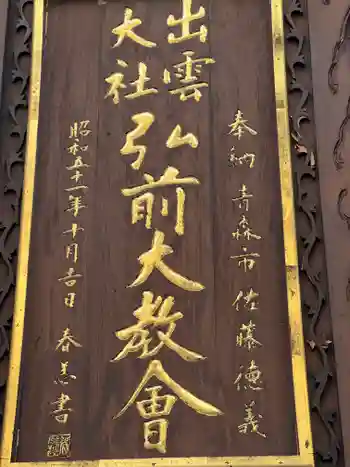 奉納 青森市 佐藤徳義
出雲
大社
弘前大教会
昭和五十一年十月吉日 春美書